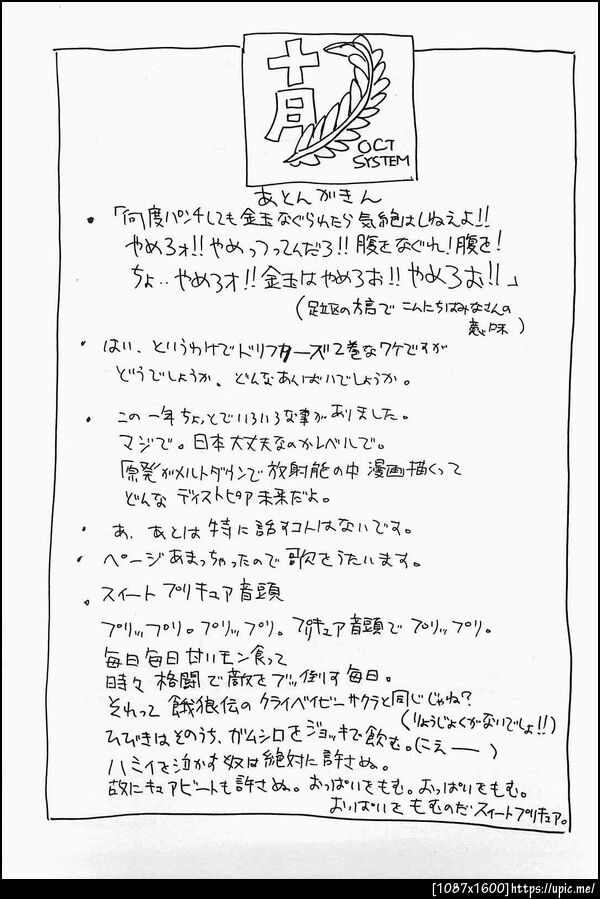 十月
OCT
SYSTEM
あとんがきん
・「何度パンチしても金玉なぐられたら気絶はしねえよ!!
やめろォ!! やめっつってんだろ!! 腹をなぐれ!腹を!
ちょ‥やめろォ!! 金玉はやめろお!! やめろお!!」
(足立区の方言で こんにちはみなさんの
意味)
・はい、というわけでドリフターズ2巻なワケですが
どうでしょうか、どんなあんばいでしょうか。
・この一年ちょっとでいろいろな事がありました。
マジで。日本大丈夫なのかレベルで。
原発がメルトダウンで放射能の中 漫画描くって
どんな ディストピア未来だよ。
・あ、あとは 特に話すコトはないです。
・ページあまっちゃったので 歌をうたいます。
・スイートプリキュア音頭
プリップリ。プリップリ。プリキュア音頭で プリップリ。
毎日毎日甘いモン食って
時々 格闘で敵をブッ倒す毎日。
それって 餓狼伝のクライベイビーサクラと同じじゃね?
(りょうじょくがないでしょ!!)
ひびきはそのうち、ガムシロをジョッキで飲む。(こえー)
ハミィを泣かす奴は絶対に許さぬ。
故にキュアビートも許さぬ。おっぱいをもむ。おっぱいをもむ。
おっぱいを もむのだスイートプリキュア。
[1087x1600]https://upic.me/